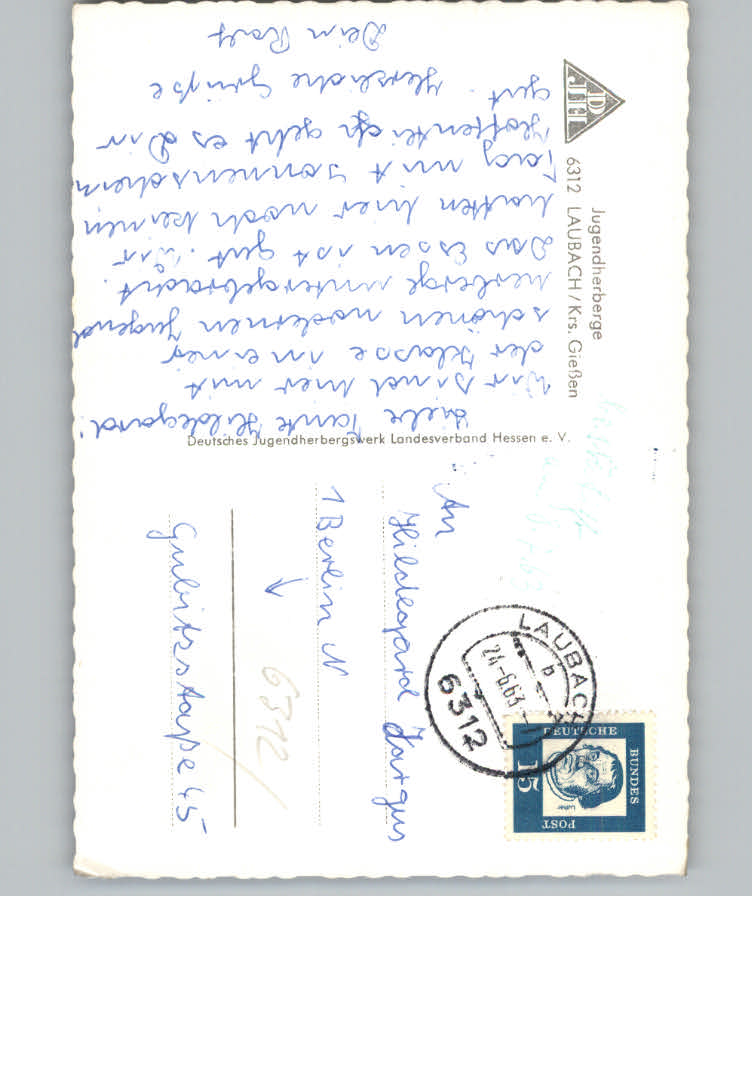 Liebe Tante Hildegard!
Wir sind hier mit
der Klasse in einer
schönen modernen Jugend
herberge untergebracht.
Das Essen ist gut. Wir
hatten hier noch keinen
Tag mit Sonnenschein
Hoffentlich geht es Dir
gut. Herzliche Grüße
Dein Ralf
DJH
Jugendherberge
6312 LAUBACH/Krs. Gießen
Deutsches Jugendherbergswerk Landesverband Hessen e. V.
An
Hildegard Jargus
1 Berlin N
Gubitzstaße 45
6312
LAUBACH
b
24.-6.63
6312
DEUTSCHE
BUNDES
POST
15
Luther